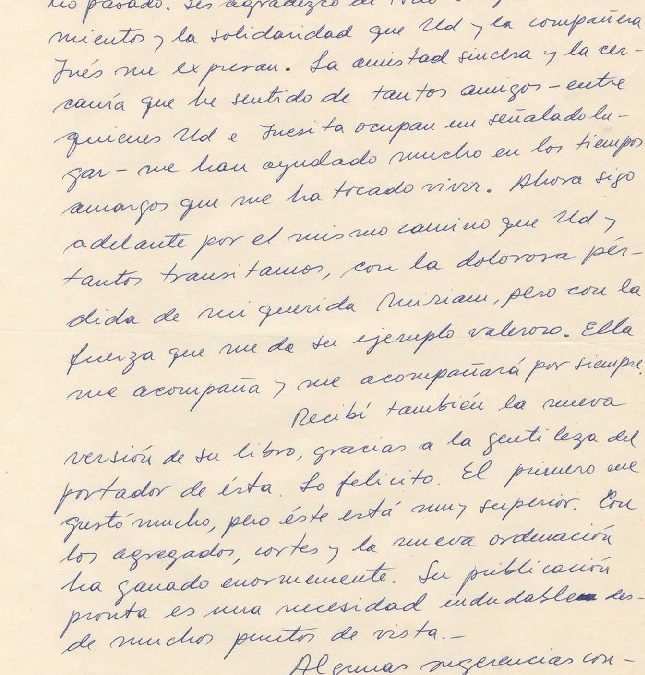 no pasado. Les agradezco de todo
mientos y la solidaridad que Ud y la compañera
Inés me expresan. La amistad sincera y la cer-
canía que he sentido de tantos amigos - entre
quienes Ud e Inesita ocupan un señalado lu-
gar - me han ayudado mucho en los tiempos
amargos que me ha tocado vivir. Ahora sigo
adelante por el mismo camino que Ud y
tantos transitamos, con la dolorosa pér-
dida de mi querida Miriam, pero con la
fuerza que me da su ejemplo valeroso. Ella
me acompaña y me acompañará por siempre.
Recibí también la nueva
versión de su libro, gracias a la gentileza del
portador de ésta. Lo felicito. El primero me
gustó mucho, pero éste está muy superior. Con
los agregados, cortes y la nueva ordenación
ha ganado enormemente. Su publicación
pronta es una necesidad indudable des-
de muchos puntos de vista.-
Algunas sugerencias con-